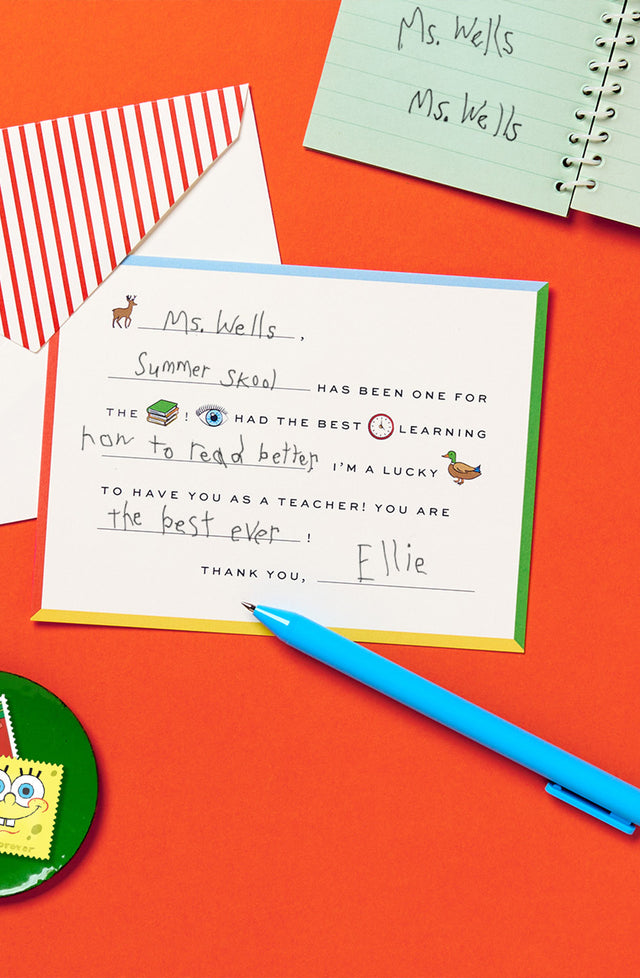 Ms. Wells
Ms. Wells
Ms. Wells,
Summer Skool HAS BEEN ONE FOR
THE ! HAD THE BEST LEARNING
how to read better I'M A LUCKY
TO HAVE YOU AS A TEACHER! YOU ARE
the best ever !
THANK YOU, Ellie